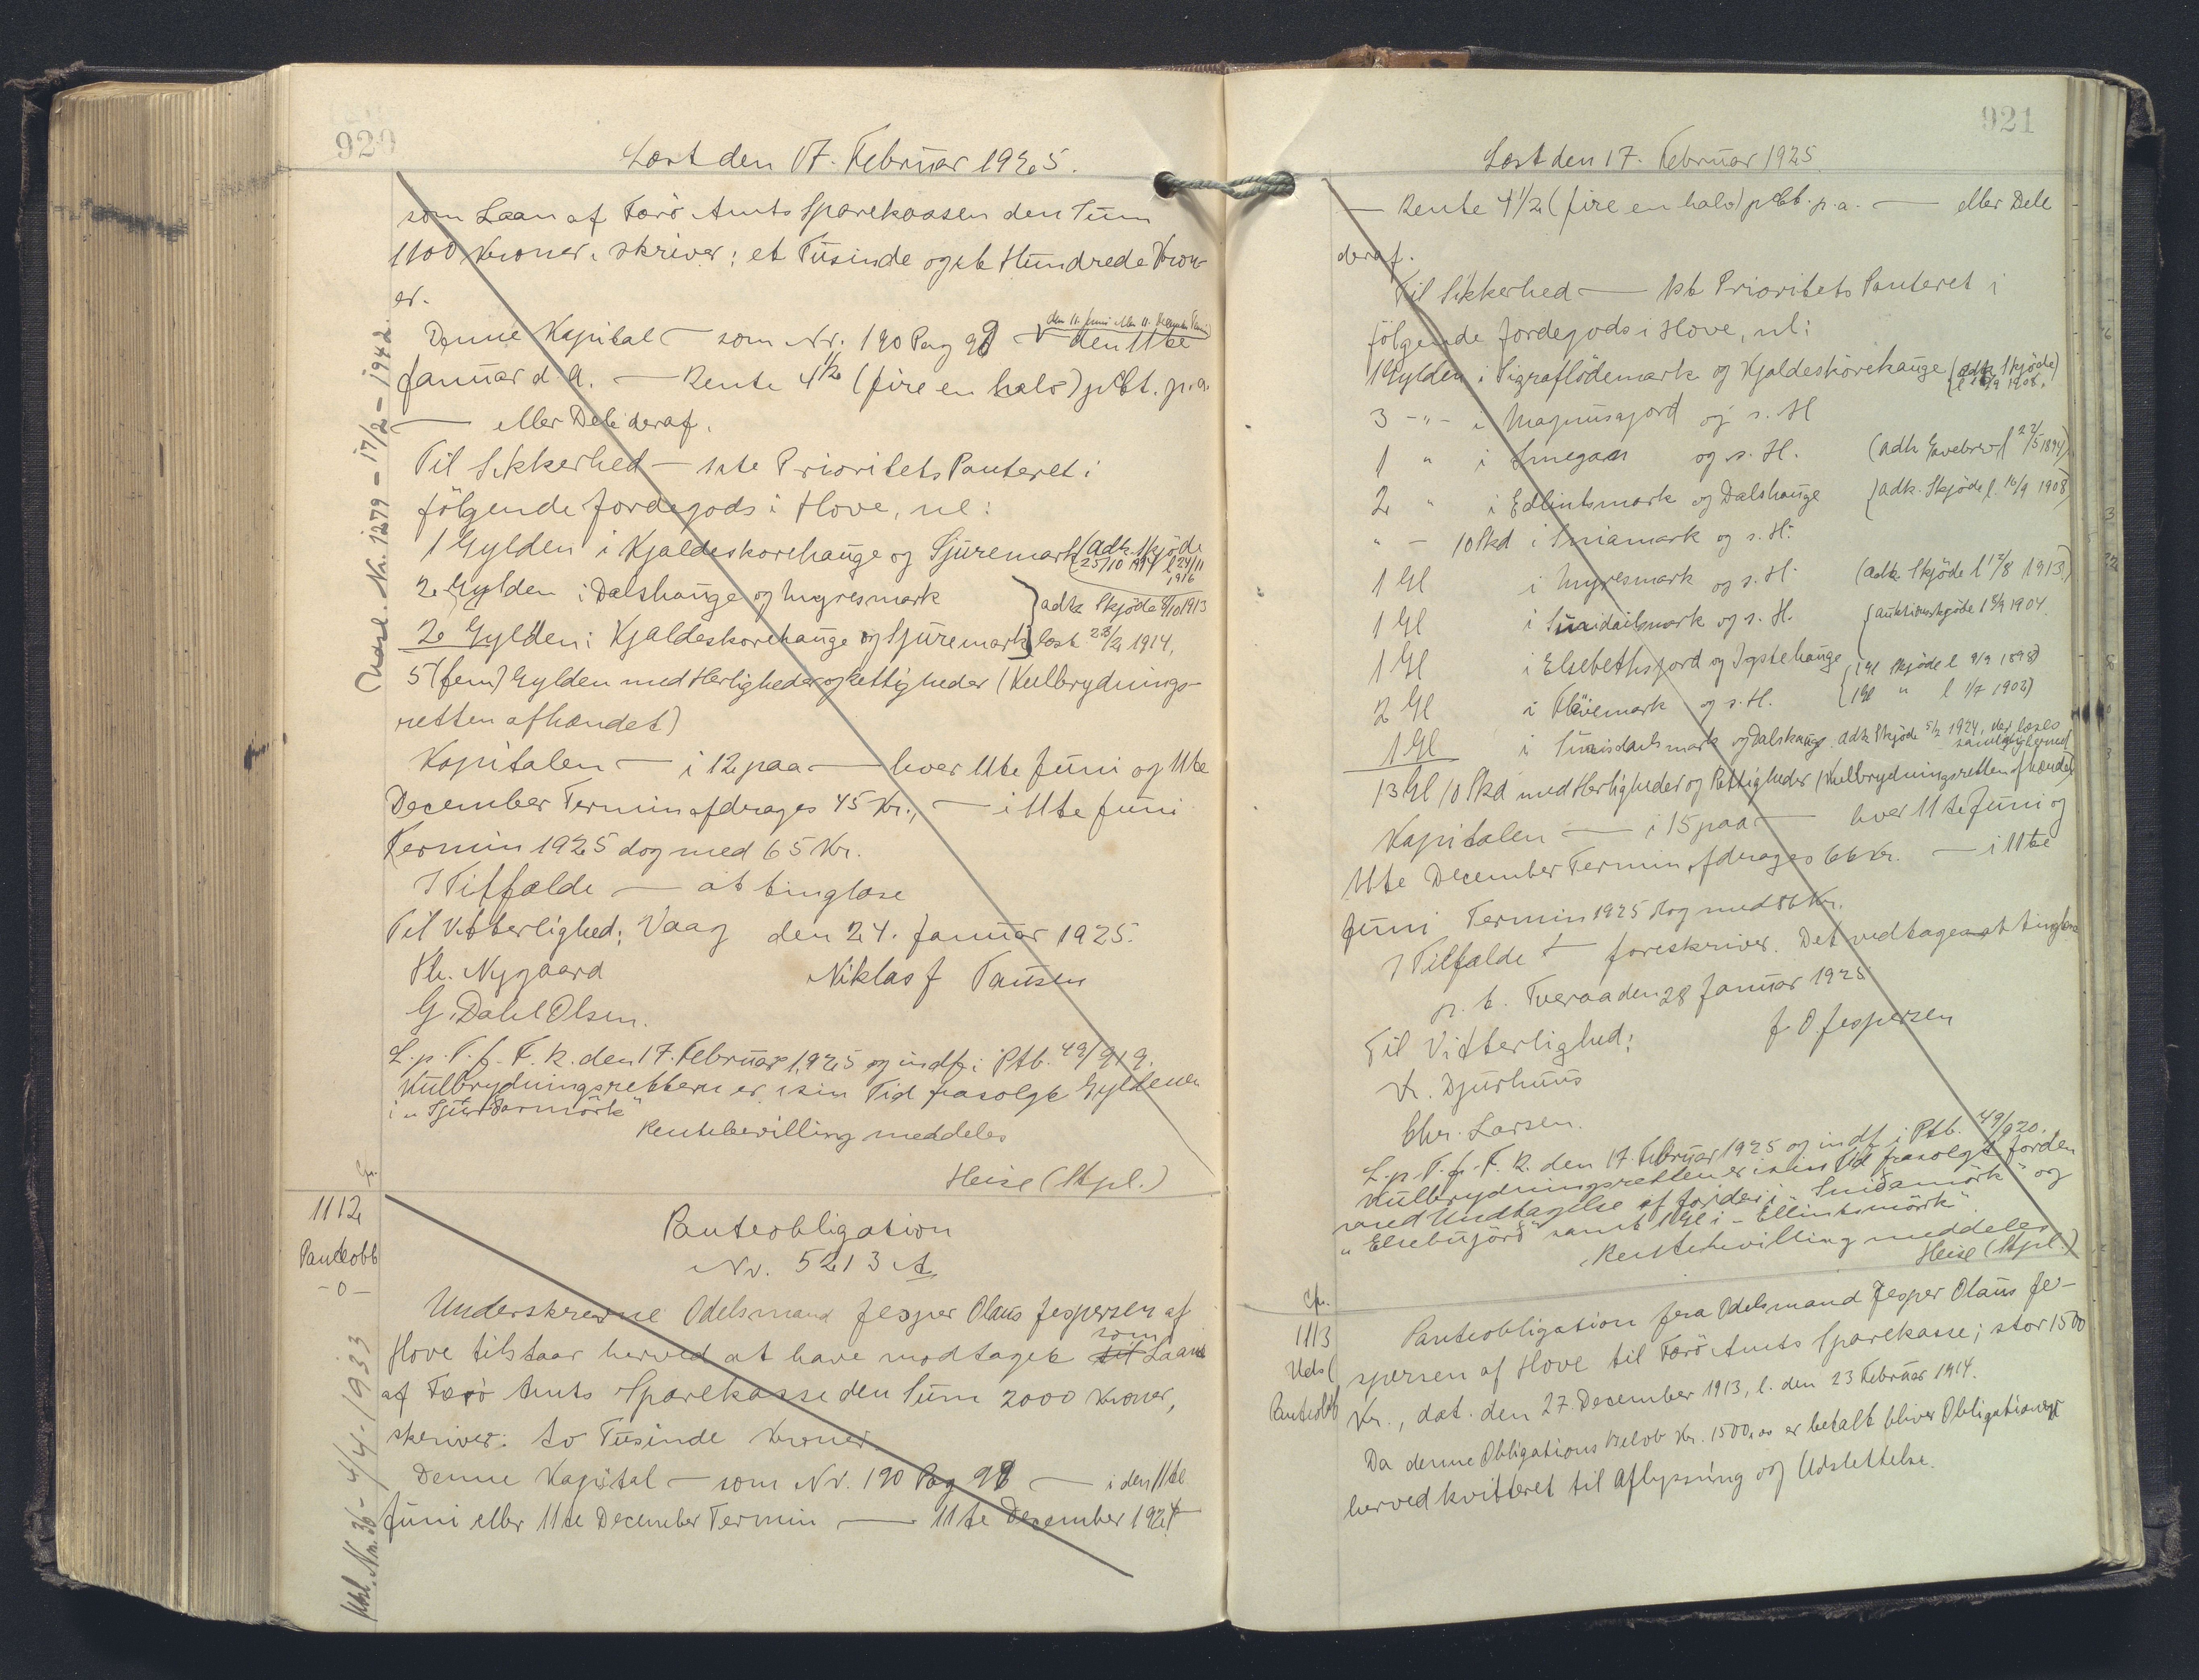 920
Læst den 17. Februar 1925.
som Laan af Færø Amts Sparekassen den Sum
1100 Kroner, skriver: et Tusinde og et Hundrede Kron-
er.
den 11. Juni eller 11. December Termin
Denne Kapital — som Nr. 190 Pag 98 — den 11te
Januar d. A. — Rente 4 1/2 (fire en halv) pCt. p.a.
— eller Dele deraf.
Til Sikkerhed — 1ste Prioritets Panteret i
følgende Jordegods i Hove, nl:
1 Gylden i Kjaldeskorehauge og Sjuremark (adk. Skjøde
25/10 1914 l 24/11
1916
2 Gylden i Dalshauge og Myresmark } adk Skjøde 8/10 1913
2 Gylden i Kjaldeskorehauge og Sjuremark } læst 23/2 1914,
5 (fem) Gylden med Herligheder og Rettigheder (Kulbrydnings-
retten afhændet)
Kapitalen — i 12 paa — hver 11te Juni og 11te
December Termin afdrages 45 Kr., — i 11te Juni
Termin 1925 dog med 65 Kr.
I Tilfælde — at tinglæse
Til Vitterlighed: Vaag den 24. Januar 1925.
Hl. Nygaard Niklas J Tausen
G. Dahl Olsen.
L. p. T. f. F. R. den 17. Februar 1925 og indf. i Ptb. 49/919.
Kulbrydningsretten er i sin Tid frasolgt Gyldenen
i "Sjurdarmørk"
Rentebevilling meddeles
Heise (Stpl.)
Udsl. Nr. 1279 — 17/2 — 1942.
Gr.
1112
Panteobl
- 0 -
Panteobligation
Nr. 5213 A
Underskrevne Odelsmand Jesper Olaus Jespersen af
Hove tilstaar herved at have modtaget til som Laan
af Færø Amts Sparekasse den Sum 2000 Kroner,
skriver: to Tusinde Kroner.
Denne Kapital — som Nr. 190 Pag 98 — i den 11te
Juni eller 11te December Termin — 11te December 1924
Udsl. Nr. 36 - 4/4 - 1933
921
Læst den 17. Februar 1925
— Rente 4 1/2 (fire en halv) pCt. p.a. — eller Dele
deraf.
Til Sikkerhed — 1ste Prioritets Panteret i
følgende Jordegods i Hove, nl:
1 Gylden i Sigraflødemark og Kjaldeskorehauge (adk Skjøde)
1908.
3 - " - i Magnusgjord og s. H
1 " i Smegaen og s. H. (adk Gavebrev l 22/5 1894)
2 " i Edlintsmark og Dalshauge (adk. Skjøde l. 16/9 1908)
" — 10 Skd i Sniamark og s. H.
1 Gl i Myresmark og s. H. (adk Skjøde l 12/8 1913)
1 Gl i Sunidailsmark og s. H. (auktionsskjøde l 8/9 1904.
1 Gl i Elsebethsgjord og Igstehauge (1 Gl Skjøde l 9/9 1898)
2 Gl i Fløvemark og s. H. (1 Gl " l 1/7 1902)
1 Gl i Sunisdailsmark og Dalshauge. adk Skjøde 5/2 1924, der læses
samtidig hermed
13 Gl 10 Skd med Herligheder og Rettigheder (Kulbrydningsretten afhændet)
Kapitalen — i 15 paa — hver 11te Juni og
11te December Termin afdrages 66 Kr. — i 11te
Juni Termin 1925 dog med 86 Kr.
I Tilfælde — foreskriver. Det vedtages at tinglæse
p. t. Tveraa den 28 Januar 1925
Til Vitterlighed: J. O. Jespersen
K. Djurhuus
Chr. Larsen.
L. p. T. f. F. R. den 17. Februar 1925 og indf. i Ptb. 49/920.
Kulbrydningsretten er i sin Tid frasolgt Jorden
med Undtagelse af Jorder i "Sniðamørk" og
"Elsebujörð" samt 1 Gl i "Ellintsmørk".
Rentebevilling meddeles
Heise (Stpl.)
Gr.
1113
Udsl
Panteobl
Panteobligation fra Odelsmand Jesper Olaus Je-
spersen af Hove til Færø Amts Sparekasse, stor 1500
Kr., dat. den 27. December 1913, l. den 23 Februar 1914.
Da denne Obligations Beløb Kr. 1500,oo er betalt bliver Obligationen
herved kvitteret til Aflysning og Udslettelse.